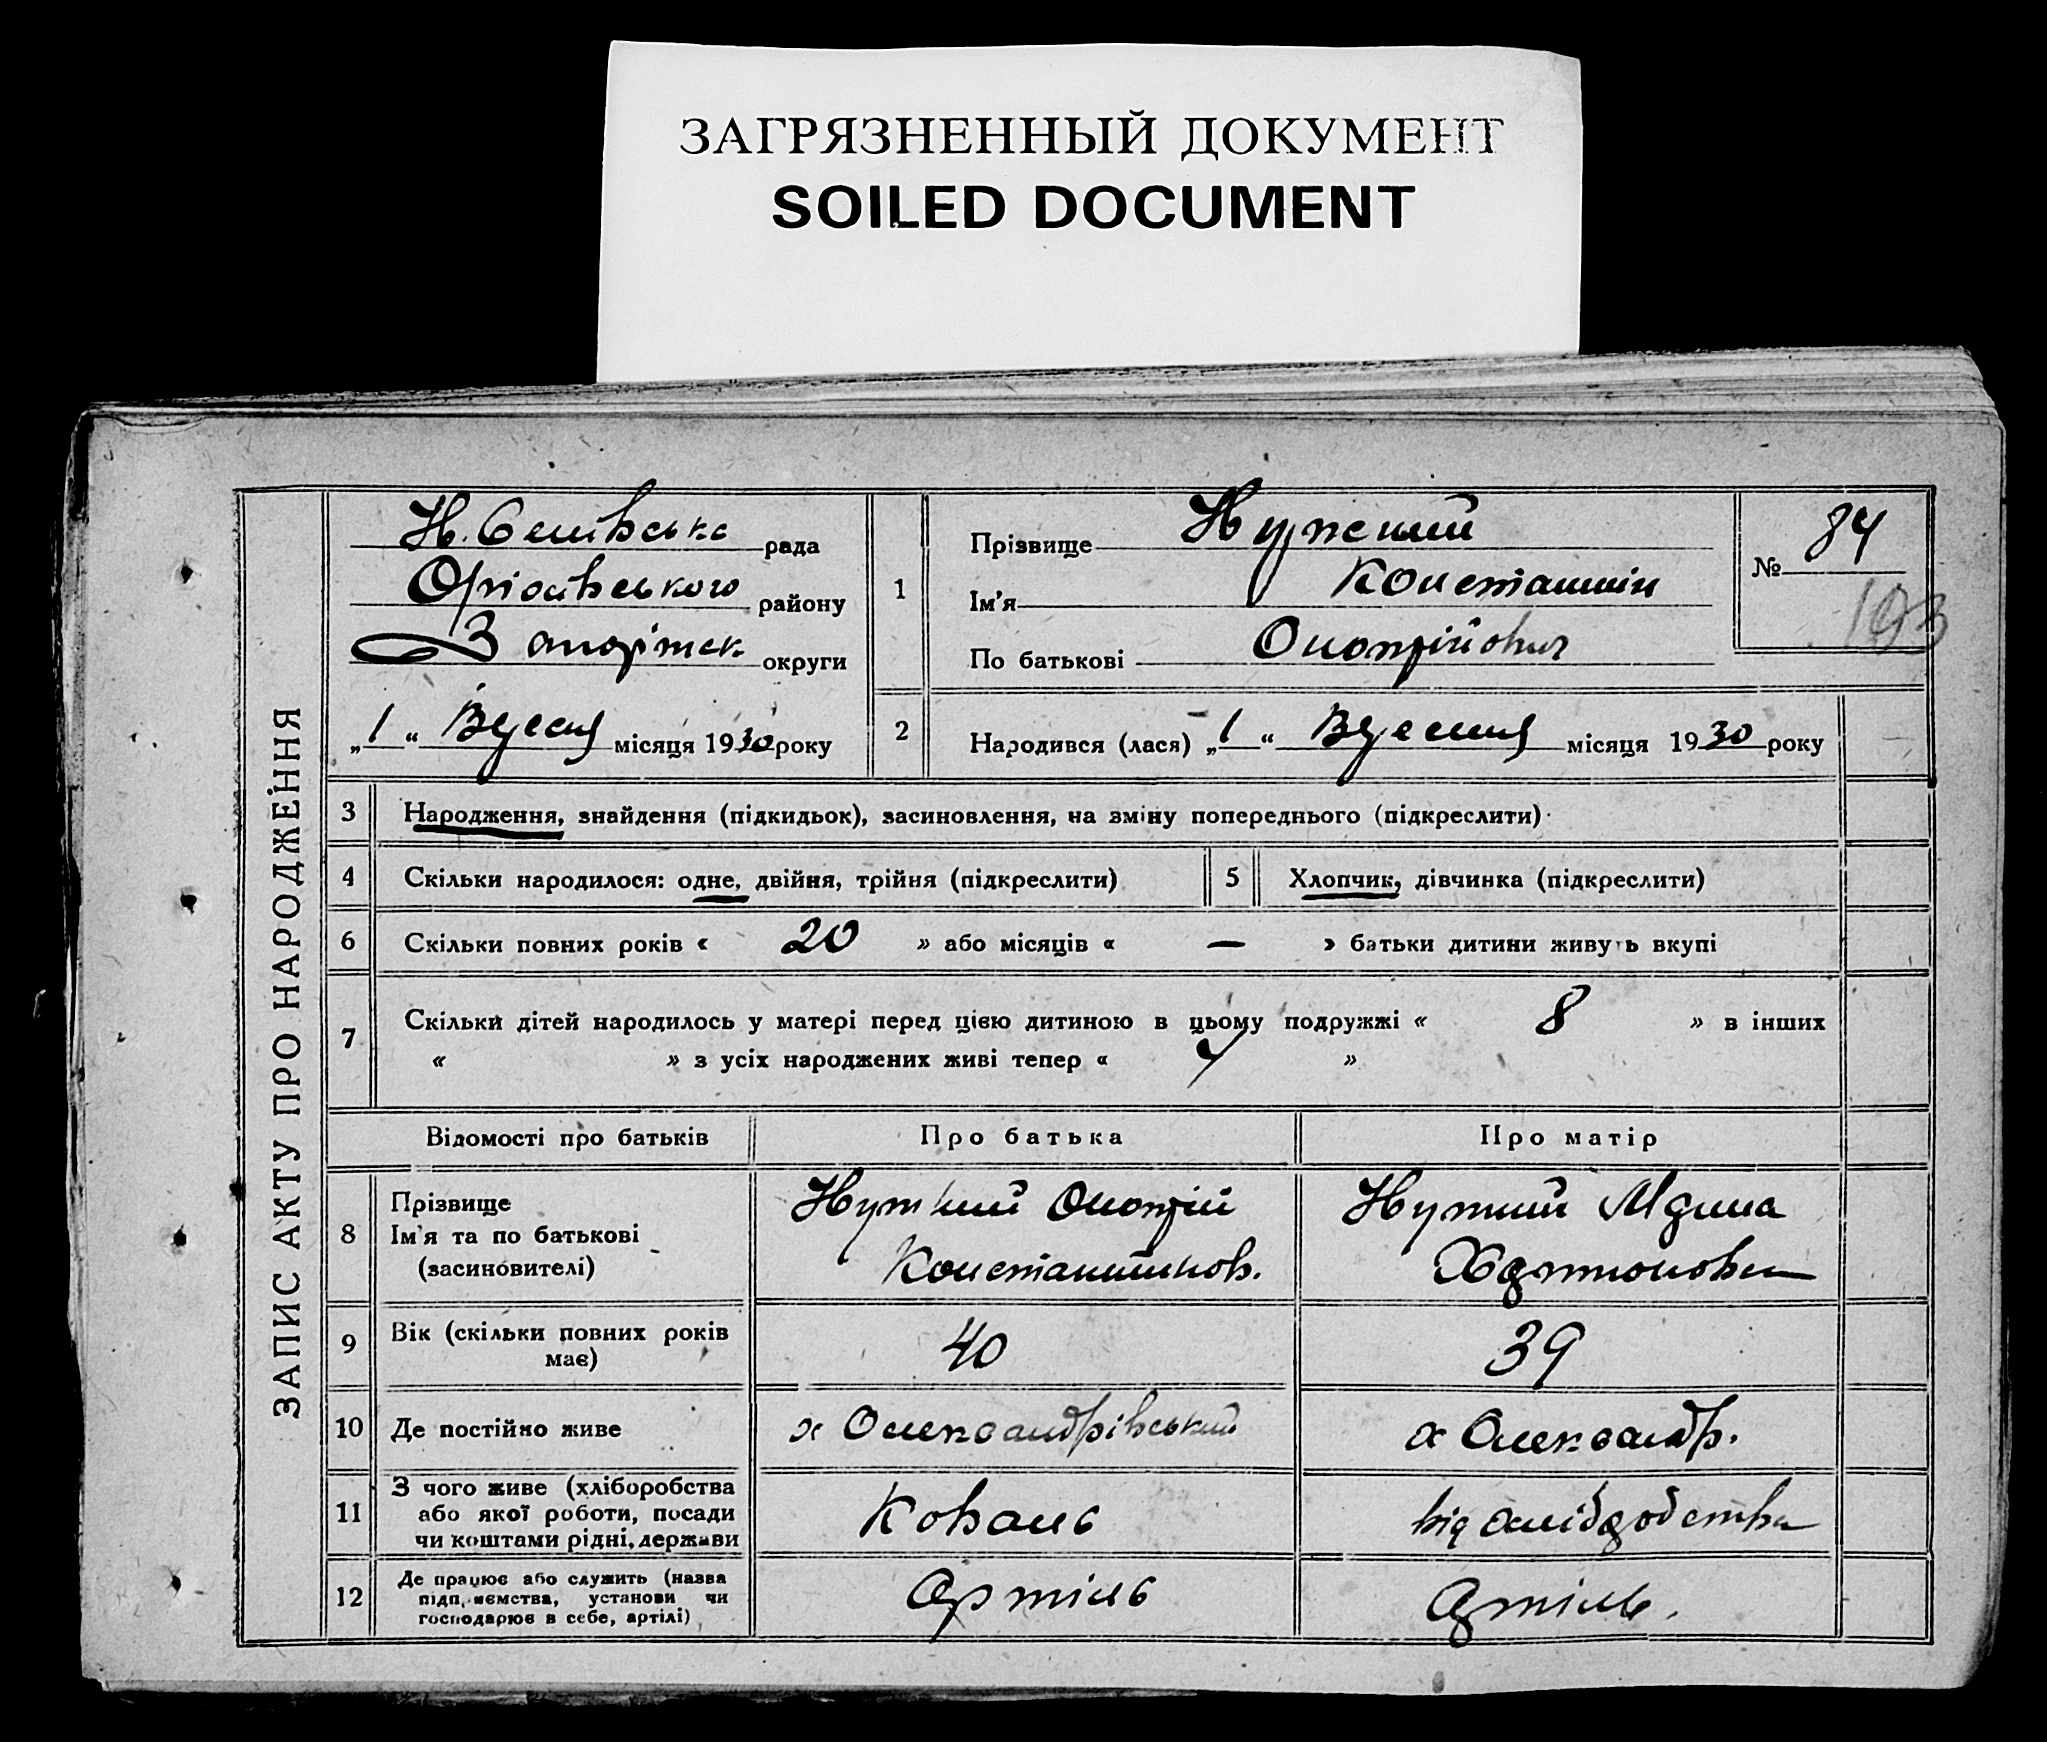 ЗАГРЯЗНЕННЫЙ ДОКУМЕНТ
SOILED DOCUMENT
ЗАПИС АКТУ ПРО НАРОДЖЕННЯ
рада
Оріхівського району
округи
„1“ Вересня місяця 1930 року
1
Прізвище
Ім'я Констянтін
По батькові
№ 84
193
2
Народився (лася) „1“ Вересня місяця 1930 року
3 Народження, знайдення (підкидьок), засиновлення, на зміну попереднього (підкреслити)
4 Скільки народилося: одне, двійня, трійня (підкреслити)
5 Хлопчик, дівчинка (підкреслити)
6 Скільки повних років « 20 » або місяців « — » батьки дитини живуть вкупі
7 Скільки дітей народилось у матері перед цією дитиною в цьому подружжі « 8 » в інших
« » з усіх народжених живі тепер « »
Відомості про батьків
Про батька
Про матір
8
Прізвище
Ім'я та по батькові
(засиновителі)
Констянтинов.
9
Вік (скільки повних років
має)
40
39
10 Де постійно живе
х Олександрівський
х Олександр.
11
З чого живе (хліборобства
або якої роботи, посади
чи коштами рідні, держави
Коваль
від
12
Де працює або служить (назва
підприємства, установи чи
господарює в себе, артілі)
Артіль
Артіль.